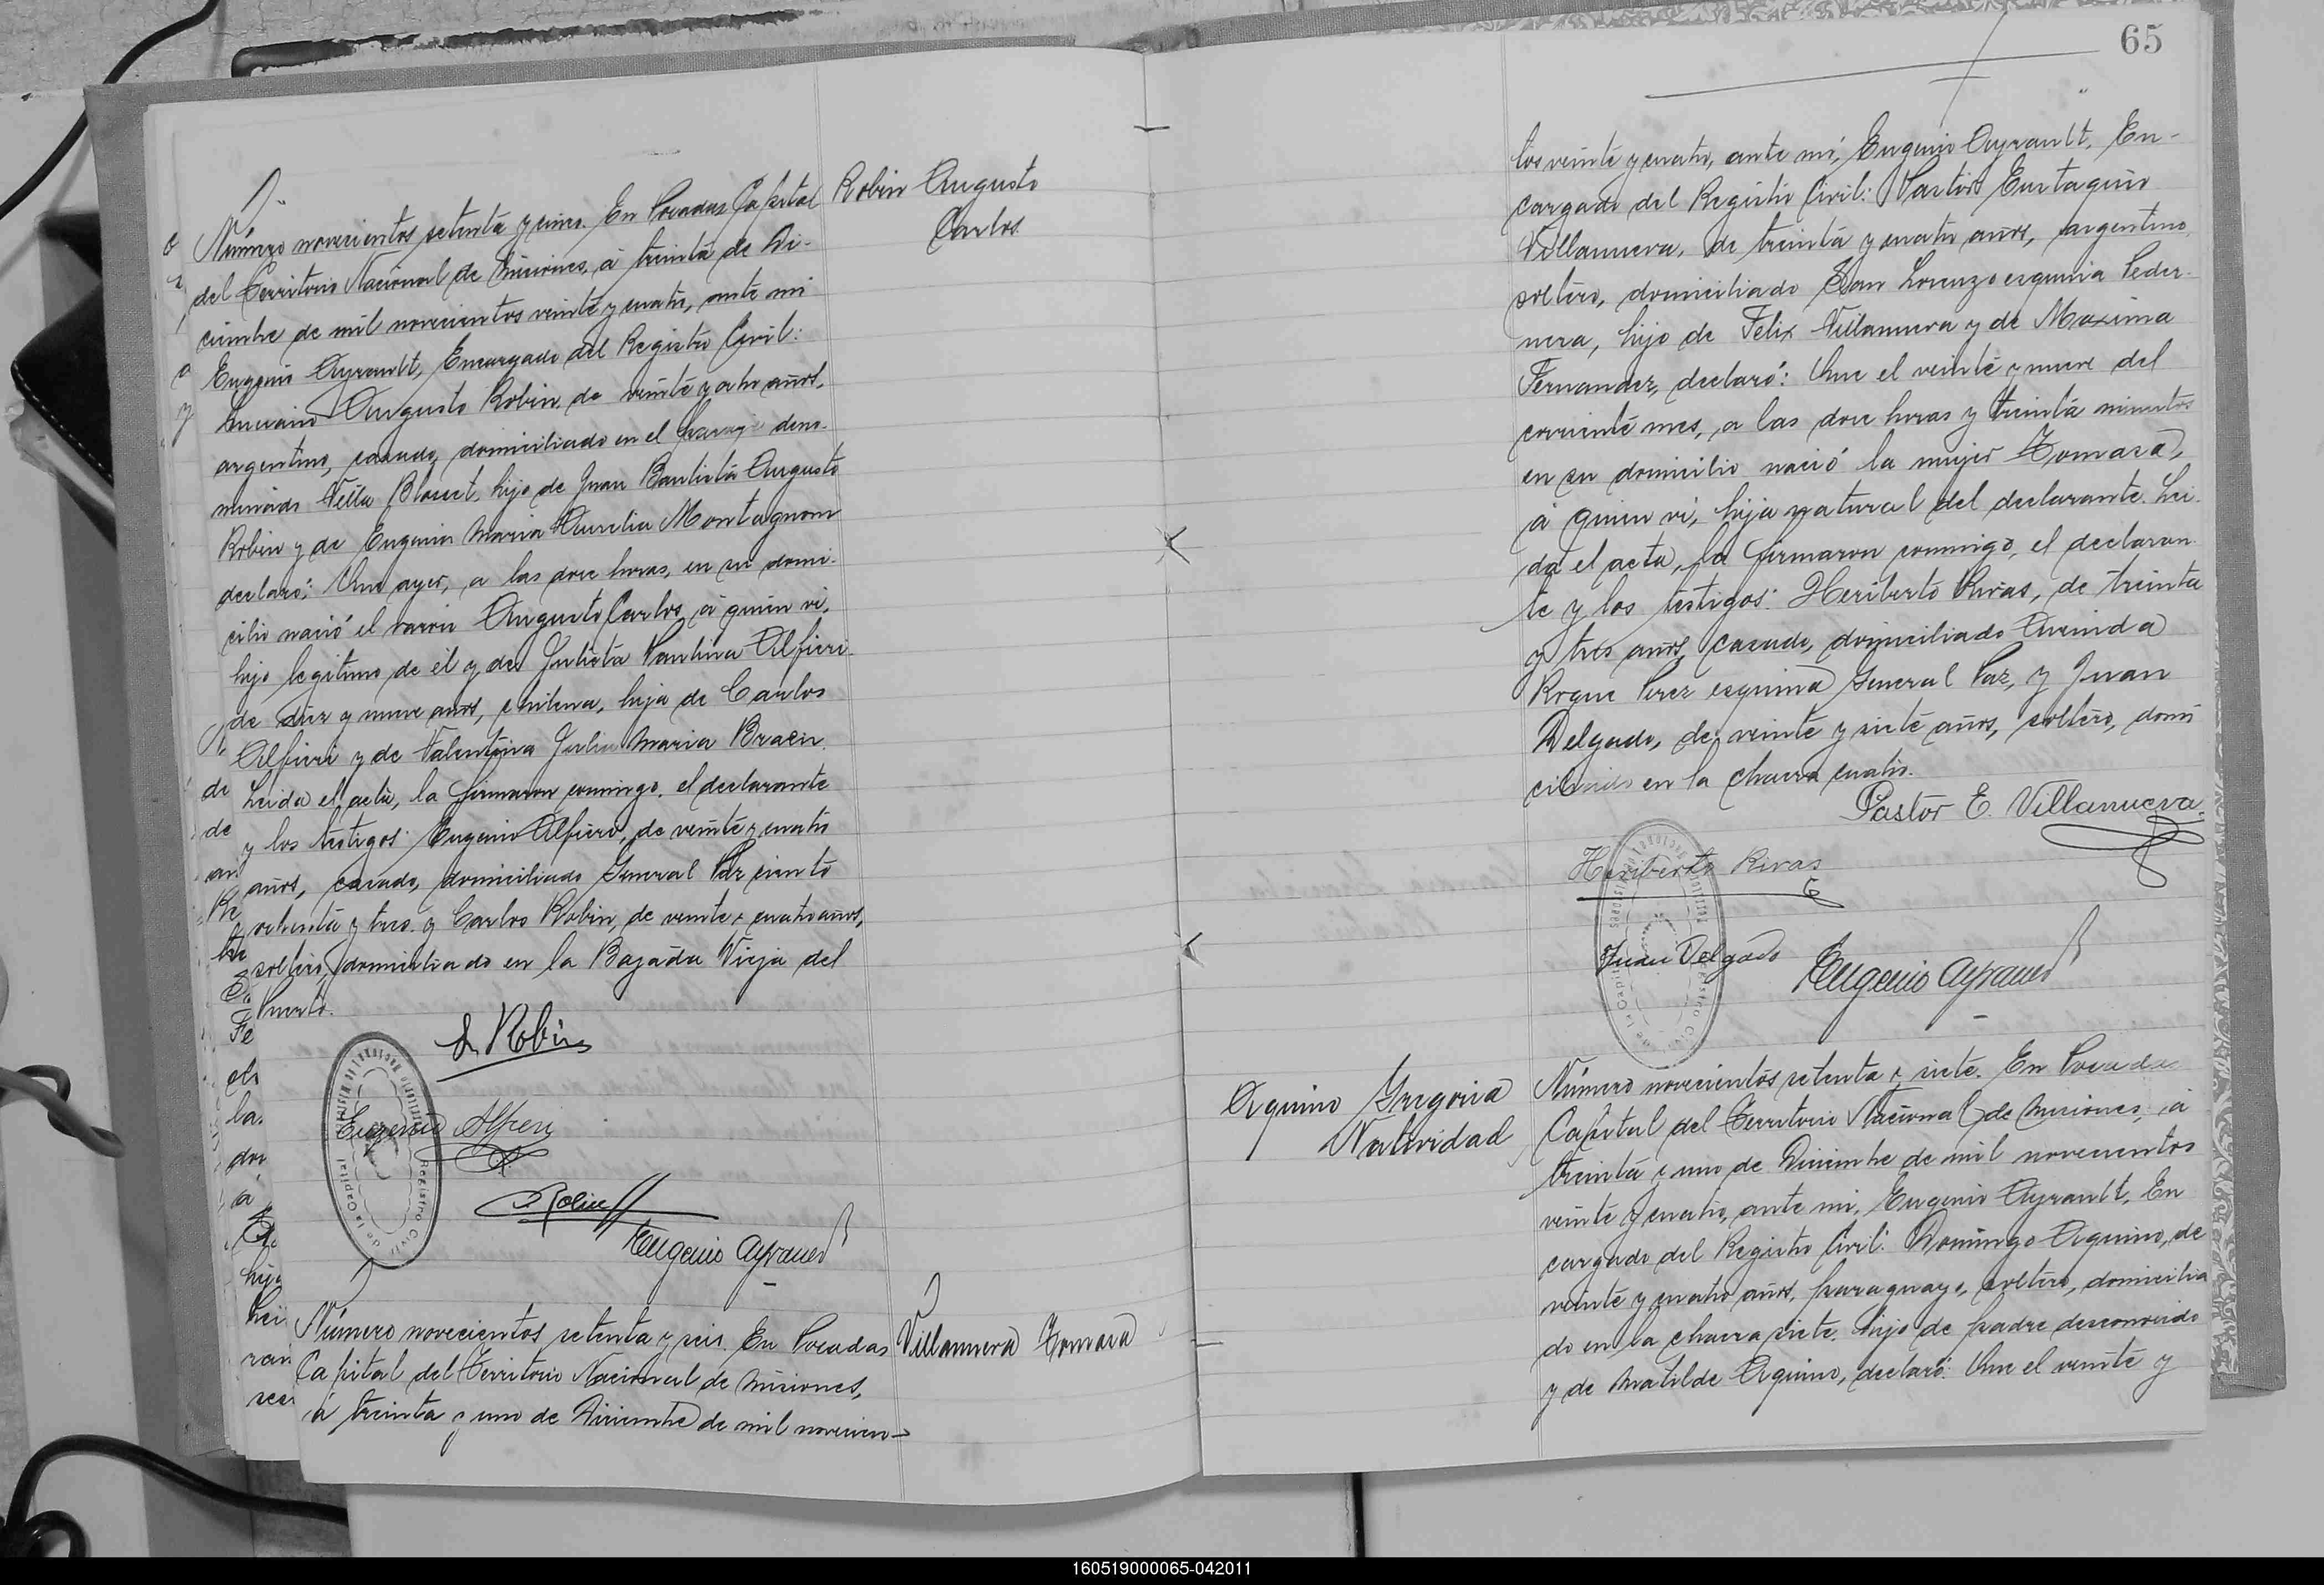 Robin Augusto
Carlos
Número novecientos setenta y cinco. En Posadas Capital
del Territorio Nacional de Misiones, á treinta de Di-
ciembre de mil novecientos veinte y cuatro, ante mi
Eugenio Ayrault, Encargado del Registro Civil:
Luciano Augusto Robin, de veinte y ocho años,
argentino, casado, domiciliado en el paraje deno-
minado Villa Blosset, hijo de Juan Bautista Augusto
Robin y de Eugenia Maria Aurelia Montagnon
declaró: Que ayer, a las doce horas, en su domi-
cilio nació el varon Augusto Carlos, á quien vi,
hijo legitimo de él y de Julieta Paulina Alfieri
de diez y nueve años, chilena, hija de Carlos
Alfieri y de Valentina Julia Maria
Leida el acta, la firmaron conmigo, el declarante
y los testigos: Eugenio Alfieri, de veinte y cuatro
años, casado, domiciliado General Paz ciento
ochenta y tres y Carlos Robin, de veinte y cuatro años,
soltero, domiciliado en la Bajada Vieja del
Puerto.
L Robin
Eugenio Alfieri
C Robin
Eugenio Ayrault
Registro Civil de la Capital
Villanueva Tomasa
Número novecientos setenta y seis. En Posadas
Capital del Territorio Nacional de Misiones,
á treinta y uno de Diciembre de mil novecien-
65
tos veinte y cuatro, ante mi, Eugenio Ayrault, En-
cargado del Registro Civil: Pastor Eustaquio
Villanueva, de treinta y cuatro años, argentino,
soltero, domiciliado San Lorenzo esquina Peder-
nera, hijo de Felix Villanueva y de Maxima
Fernandez, declaró: Que el veinte y nueve del
corriente mes, a las doce horas y treinta minutos
en su domicilio nació la mujer Tomasa,
á quien vi, hija natural del declarante. Lei-
da el acta, la firmaron conmigo, el declaran-
te y los testigos: Heriberto Rivas, de treinta
y tres años, casado, domiciliado Avenida
Roque Perez esquina General Paz, y Juan
Delgado, de veinte y siete años, soltero, domi
ciliado en la chacra cuatro.
Pastor E. Villanueva
Heriberto Rivas
Juan Delgado
Eugenio Ayrault
Aquino Gregoria
Natividad
Número novecientos setenta y siete. En Posadas
Capital del Territorio Nacional de Misiones, á
treinta y uno de Diciembre de mil novecientos
veinte y cuatro, ante mi, Eugenio Ayrault, En
cargado del Registro Civil: Domingo Aquino, de
veinte y cuatro años, paraguayo, soltero, domicilia
do en la chacra siete, hijo de padre desconocido
y de Matilde Aquino, declaró: Que el veinte y
160519000065-042011